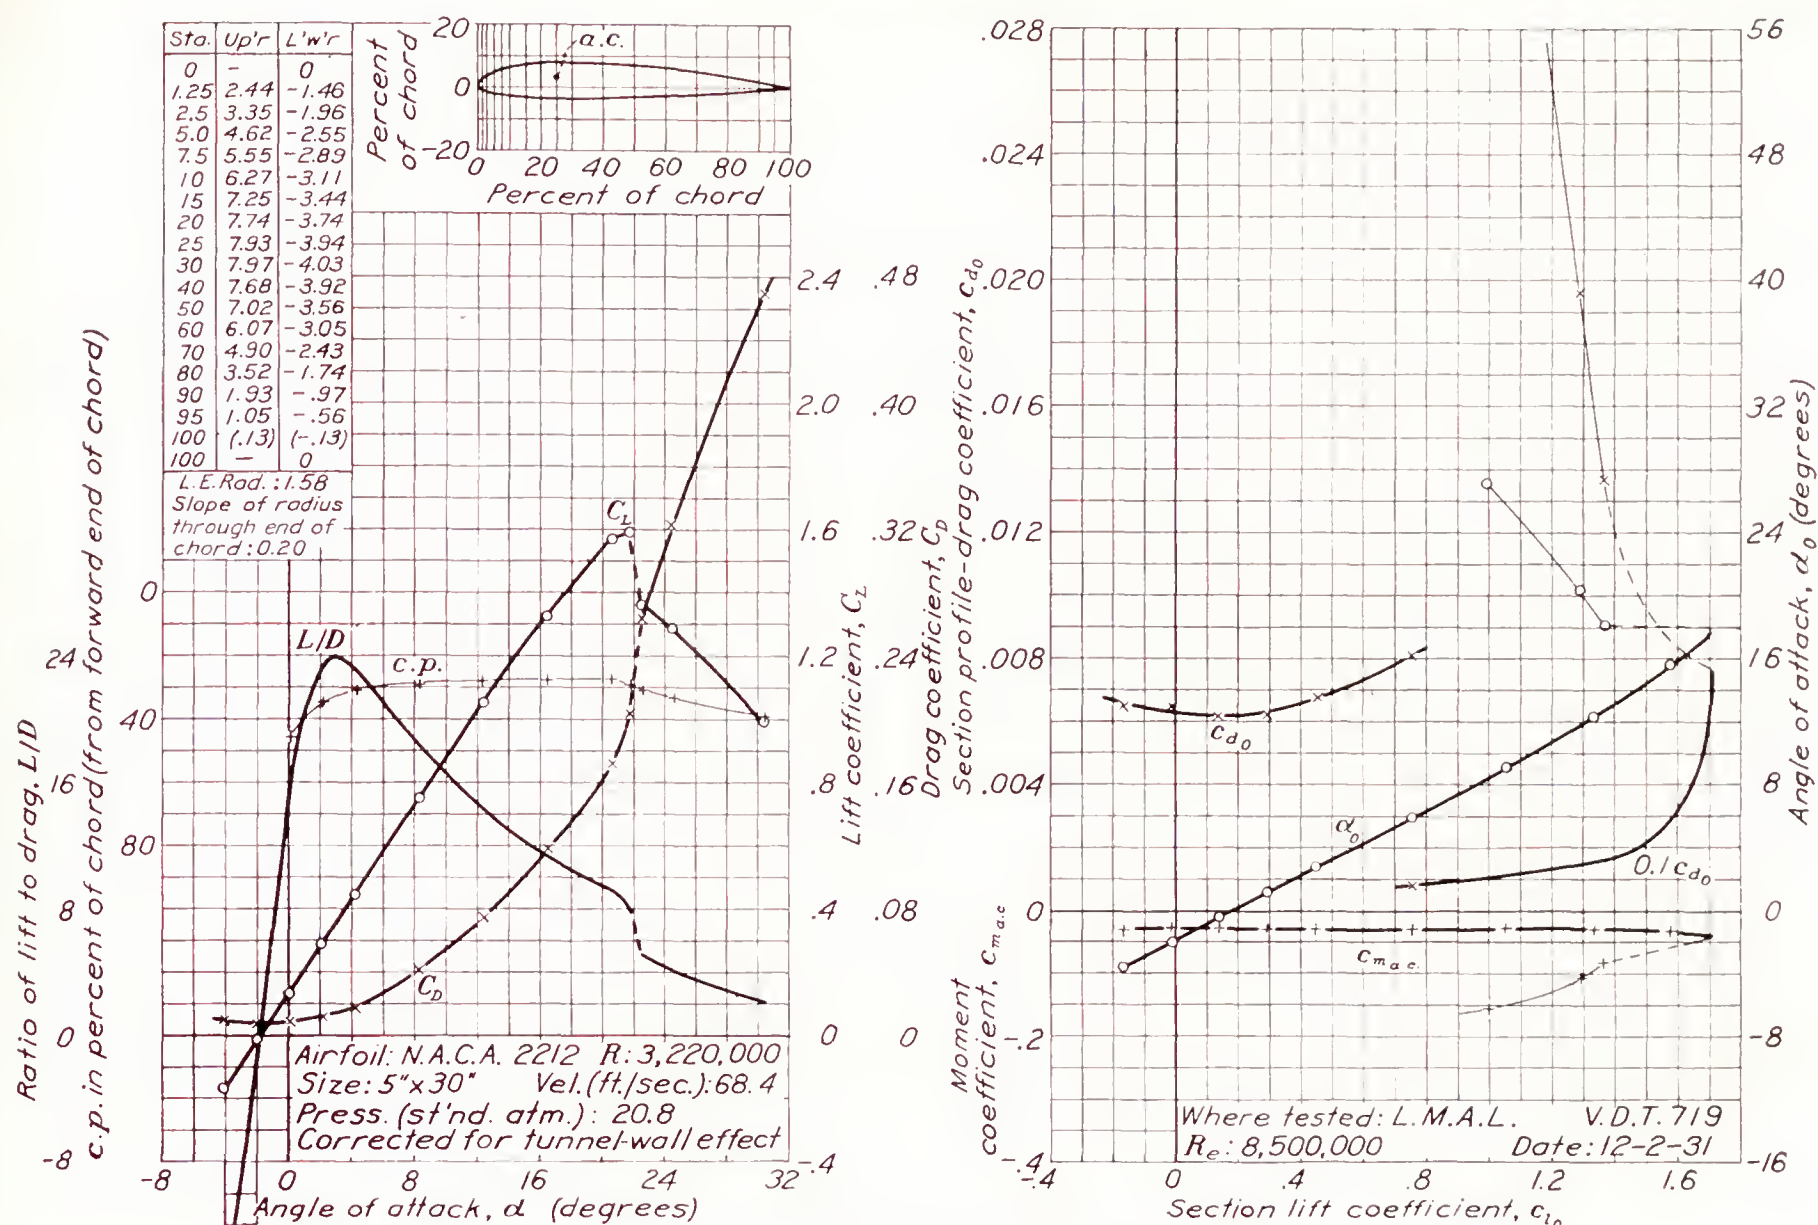 Sta. Up'r L'w'r
0 - 0
1.25 2.44 -1.46
2.5 3.35 -1.96
5.0 4.62 -2.55
7.5 5.55 -2.89
10 6.27 -3.11
15 7.25 -3.44
20 7.74 -3.74
25 7.93 -3.94
30 7.97 -4.03
40 7.68 -3.92
50 7.02 -3.56
60 6.07 -3.05
70 4.90 -2.43
80 3.52 -1.74
90 1.93 -.97
95 1.05 -.56
100 (.13) (-.13)
100 - 0
L.E.Rad.:1.58
Slope of radius
through end of
chord:0.20
Percent
of chord
20
0
-20
a.c.
0 20 40 60 80 100
Percent of chord
Ratio of lift to drag, L/D
24
16
8
0
-8
c.p. in percent of chord (from forward end of chord)
0
40
80
L/D
c.p.
C_L
C_D
2.4 .48
2.0 .40
1.6 .32
1.2 .24
.8 .16
.4 .08
0 0
-.4
Lift coefficient, C_L
Drag coefficient, C_D
Airfoil: N.A.C.A. 2212 R: 3,220,000
Size: 5"x30" Vel.(ft./sec.): 68.4
Press. (st'nd. atm.): 20.8
Corrected for tunnel-wall effect
-8 0 8 16 24 32
Angle of attack, α (degrees)
Section profile-drag coefficient, c_d0
.028
.024
.020
.016
.012
.008
.004
0
-.2
-.4
Moment
coefficient, c_m a.c.
c_d0
α_0
0.1 c_d0
c_m a.c.
56
48
40
32
24
16
8
0
-8
-16
Angle of attack, α_0 (degrees)
Where tested: L.M.A.L. V.D.T. 719
R_e: 8,500,000 Date: 12-2-31
-.4 0 .4 .8 1.2 1.6
Section lift coefficient, c_l0